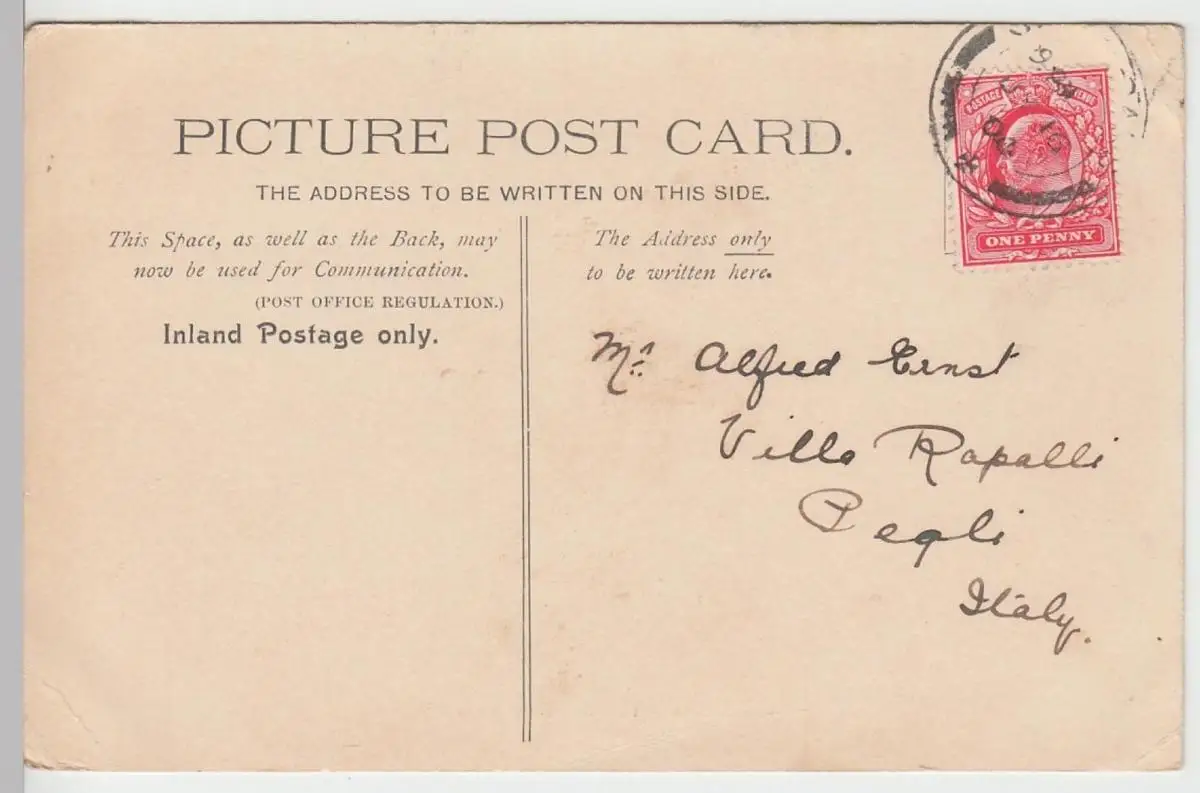 PICTURE POST CARD.
THE ADDRESS TO BE WRITTEN ON THIS SIDE.
This Space, as well as the Back, may
now be used for Communication.
(POST OFFICE REGULATION.)
Inland Postage only.
The Address only
to be written here.
POSTAGE
ONE PENNY
Mr. Alfred Ernst
Villa Rapalli
Pegli
Italy.